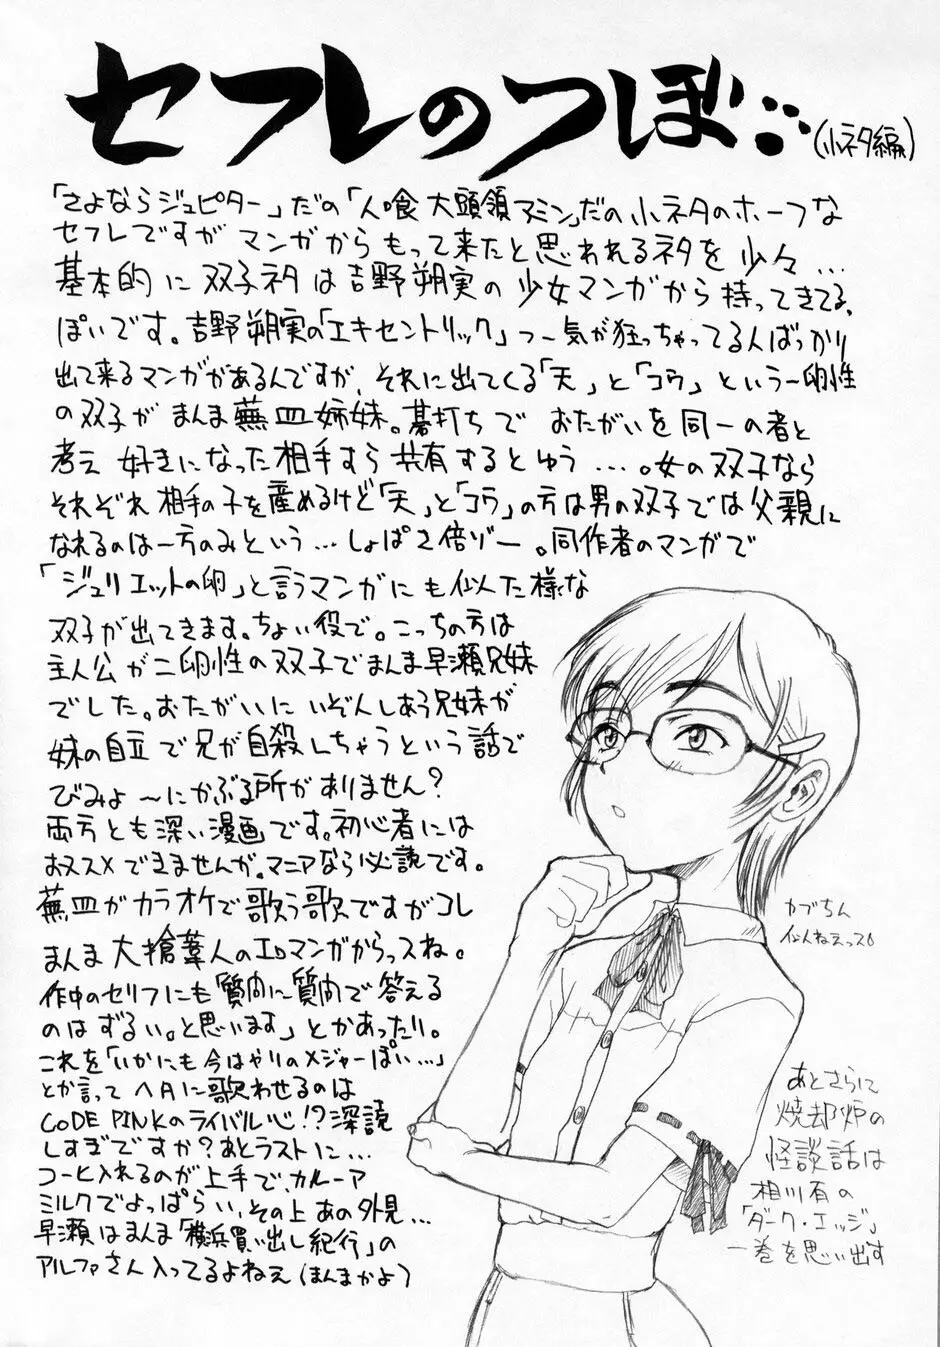 セフレのつぼ…
(小ネタ編)
「さよならジュピター」だの「人喰大頭領アミン」だの小ネタのホーフな
セフレですがマンガからもって来たと思われるネタを少々…
基本的に双子ネタは吉野朔実の少女マンガから持ってきてる、
ぽいです。吉野朔実の「エキセントリック」つー気が狂っちゃってる人ばっかり
出て来るマンガがあるんですが、それに出てくる「天」と「コウ」という一卵性
の双子がまんま蕪皿姉妹。碁打ちでおたがいを同一の者と
考え好きになった相手すら共有するとゆう…。女の双子なら
それぞれ相手の子を産めるけど「天」と「コウ」の方は男の双子では父親に
なれるのは一方のみという…しょぱさ倍ゾー。同作者のマンガで
「ジュリエットの卵」と言うマンガにも似た様な
双子が出てきます。ちょい役で。こっちの方は
主人公が二卵性の双子でまんま早瀬兄妹
でした。おたがいにいぞんしあう兄妹が
妹の自立で兄が自殺しちゃうという話で
びみょ〜にかぶる所がありません?
両方とも深い漫画です。初心者には
おススメできませんが。マニアなら必読です。
蕪皿がカラオケで歌う歌ですがコレ
まんま大槍葦人のエロマンガからっスね。
作中のセリフにも「質問に質問で答える
のはずるい。と思います」とかあったり。
これを「いかにも今はやりのメジャーぽい…」
とか言ってヘタに歌わせるのは
CODE PINKのライバル心!?深読
しすぎですか?あとラストに…
コーヒ入れるのが上手で、カルーア
ミルクでよっぱらい、その上あの外見…
早瀬はまんま「横浜買い出し紀行」の
アルファさん入ってるよねえ(ほんまかよ)
カブちん
似んねえっスo
あとさらに
焼却炉の
怪談話は
相川有の
「ダーク・エッジ」
一巻を思い出す